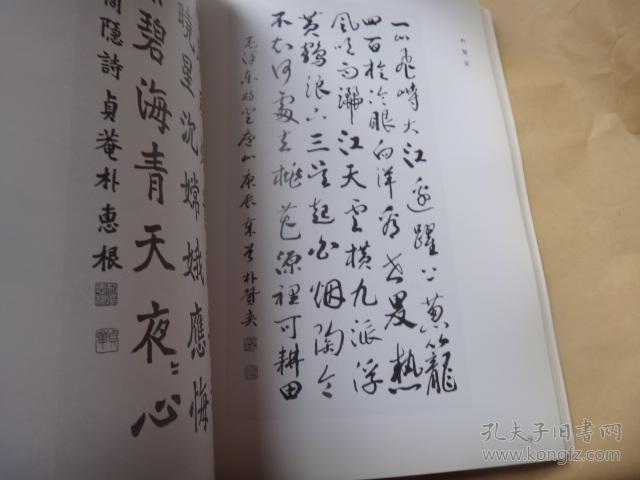 一山飛峙大江邊躍上葱籠
四百旋冷眼向洋看世界熱
風吹雨灑江天雲橫九派浮
黃鶴浪下三吳起白烟陶令
不知何處去桃花源裡可耕田
毛泽东詩登庐山庚辰
曉星沈嫦娥應悔
碧海青天夜〻心
商隱詩貞菴朴惠根
孔夫子旧书网